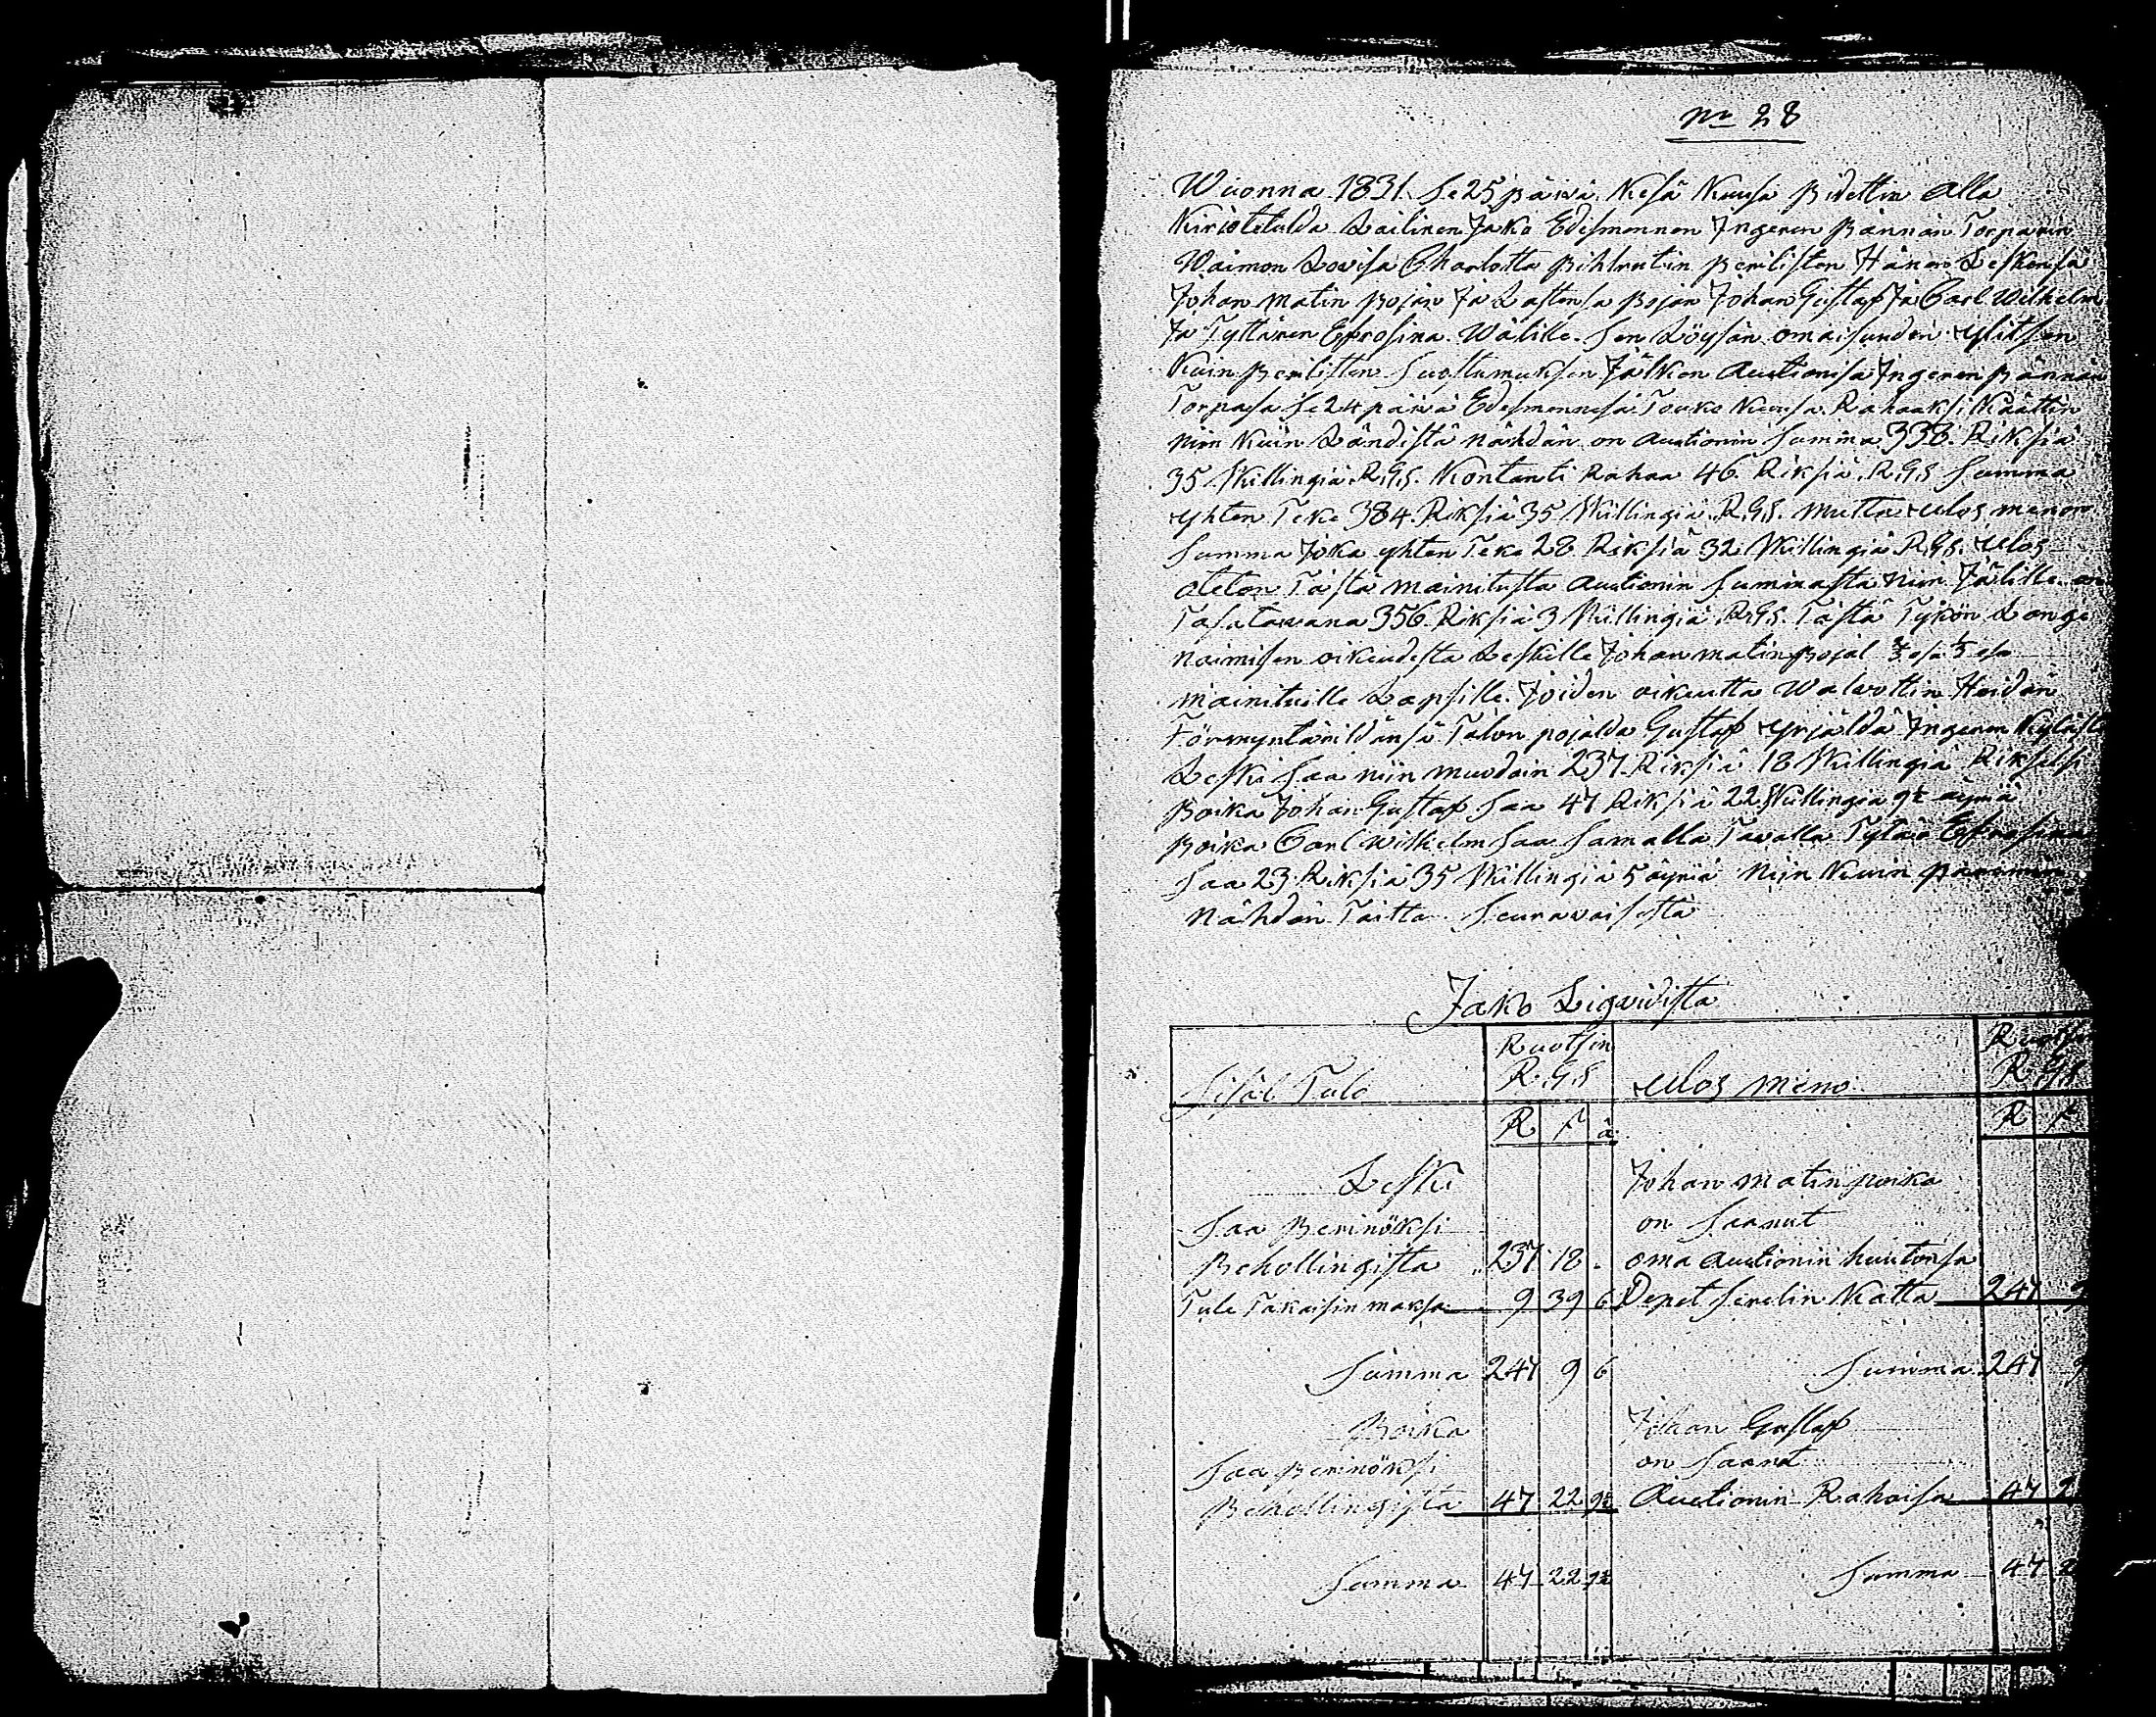 No 28
Wuonna 1831. Se 25 päivä Kesä Kuusa Pidettin Alla
Kiriotetulda Lailinen Jako Edesmennen Ingeren Pännän Torparin
Waimon Lovisa Charlotta Pihlrutin Perilisten Hänen Leskensä
Johan Matin Pojan Ja Lastensa Pojan Johan Gustaf Ja Carl Wilhelm
Ja Tyttären Efrosina Wälille. Sen Löysän omaisuuden ylitsen
Kuin Perilisten Suostumuksen Jälken Auctionisa Ingeren Pännän
Torpasa Se 24 päivä Edesmennesä Touko Kuusa Rahaaksi Käättin
niin Kuin Ländistä nähdän on Auctionin Summa 338. Riksiä
35 Skillingiä R.G.S. Kontanti Rahaa 46. Riksiä. R.G.S Summa
yhten Teke 384. Riksiä 35 Skillingiä. R.G.S. mutta ulos menon
Summa Joka yhten Teke 28 Riksiä 32 Skillingiä R.G.S. ulos
oteton Tästä mainitusta Auctionin Summasta niin Jälille on
Tasatavana 356. Riksiä 3 Skillingiä R.G.S. Tästä Tykön Lange
naimisen oikeudesta Leskille Johan Matin Pojal ⅔ osa ⅓ osa
mainituille Lapsille. Joiden oikeutta Walvottin Heidän
Förmyntärildänsä Talon pojalda Gustaf yrjäldä Ingeren Kyläst
Leski Saa niin muodoin 237. Riksiä 18 Skillingiä Rikselsi
Poika Johan Gustaf Saa 47 Riksiä 22 Skillingiä 9½ äyriä
Poika Carl Wilhelm Saa Samalla Tavalla Tytär Efrosina
Saa 23 Riksiä 35 Skillingiä 5 äyriä Niin Kuin paremin
Nähdän Täittä Seuravaisesta
Jako Ligvidista
Sisäl Tulo Ruotsin R.G.S ulos meno Ruotsin R.G.S
R S ä R S
Leski Johan Matin poika
Saa Perinöksi on Saanut
Behollingista 237 18 . oma Auctionin huutonsa
Tule Takaisin maksa 9 39 6 Depet Serelin Katta 247 9
Summa 247 9 6 Summa 247 9
Poika Johan Gustaf
Saa Perinöksi on Saanut
Behollingista 47 22 9½ Auctionin Rahaisa 47 2
Summa 47 22 9½ Summa 47 2